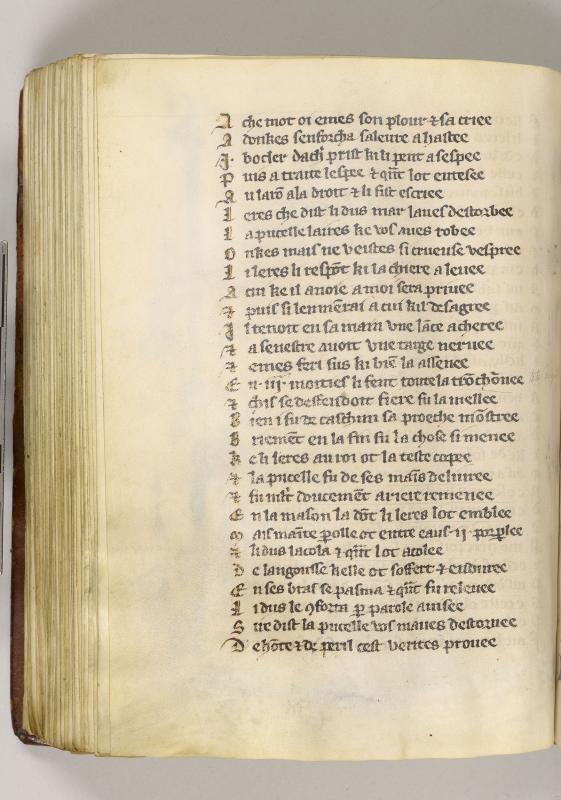 A che mot oi emes son plour ⁊ sa criee
A donkes senforcha saleure a hastee
J. bocler dach̾ prist ki li pent a sespee
P uis a traite lespee ⁊ q̄nt lot entesee
A u larō ala droit ⁊ li fist escriee
L eres che dist li dus mar laues destorbee
L a pucelle laires ke vos aues robee
O nkes mais ne veistes si crueuse vespree
L i leres li respōt ki la chiere a leuee
A cui ke il anoie a moi sera priuee
⁊ puis si lenmērai a cui kil desagree
J l tenoit en sa main vne lāce aceree
⁊ a senestre auoit vne targe neruee
⁊ emes feri sus ki biē la assenee
E n .iij. moities li fent toute la trōchōnee
⁊ chis se deffendoit fiere fu la mellee
B ien i fu de caschun sa proeche mōstree
B riemēt en la fin fu la chose si menee
k e li leres au roi ot la teste copee
⁊ la pucelle fu de ses māis deliuree
⁊ fu mlt̄ doucemēt ariere remenee
E n la maison la dōt li leres lot emblee
M ais māite ꝑolle ot entre eaus .ij. porꝑlee
⁊ li dus lacola ⁊ q̄nt lot acolee
D e langousse kelle ot soffert ⁊ enduree
E n ses bras se pasma ⁊ q̄nt fu releuee
L i dus le ꝯforta ꝑ parole auisee
S ire dist la pucelle vos maues destornee
D e hōte ⁊ de peril cest verites prouee